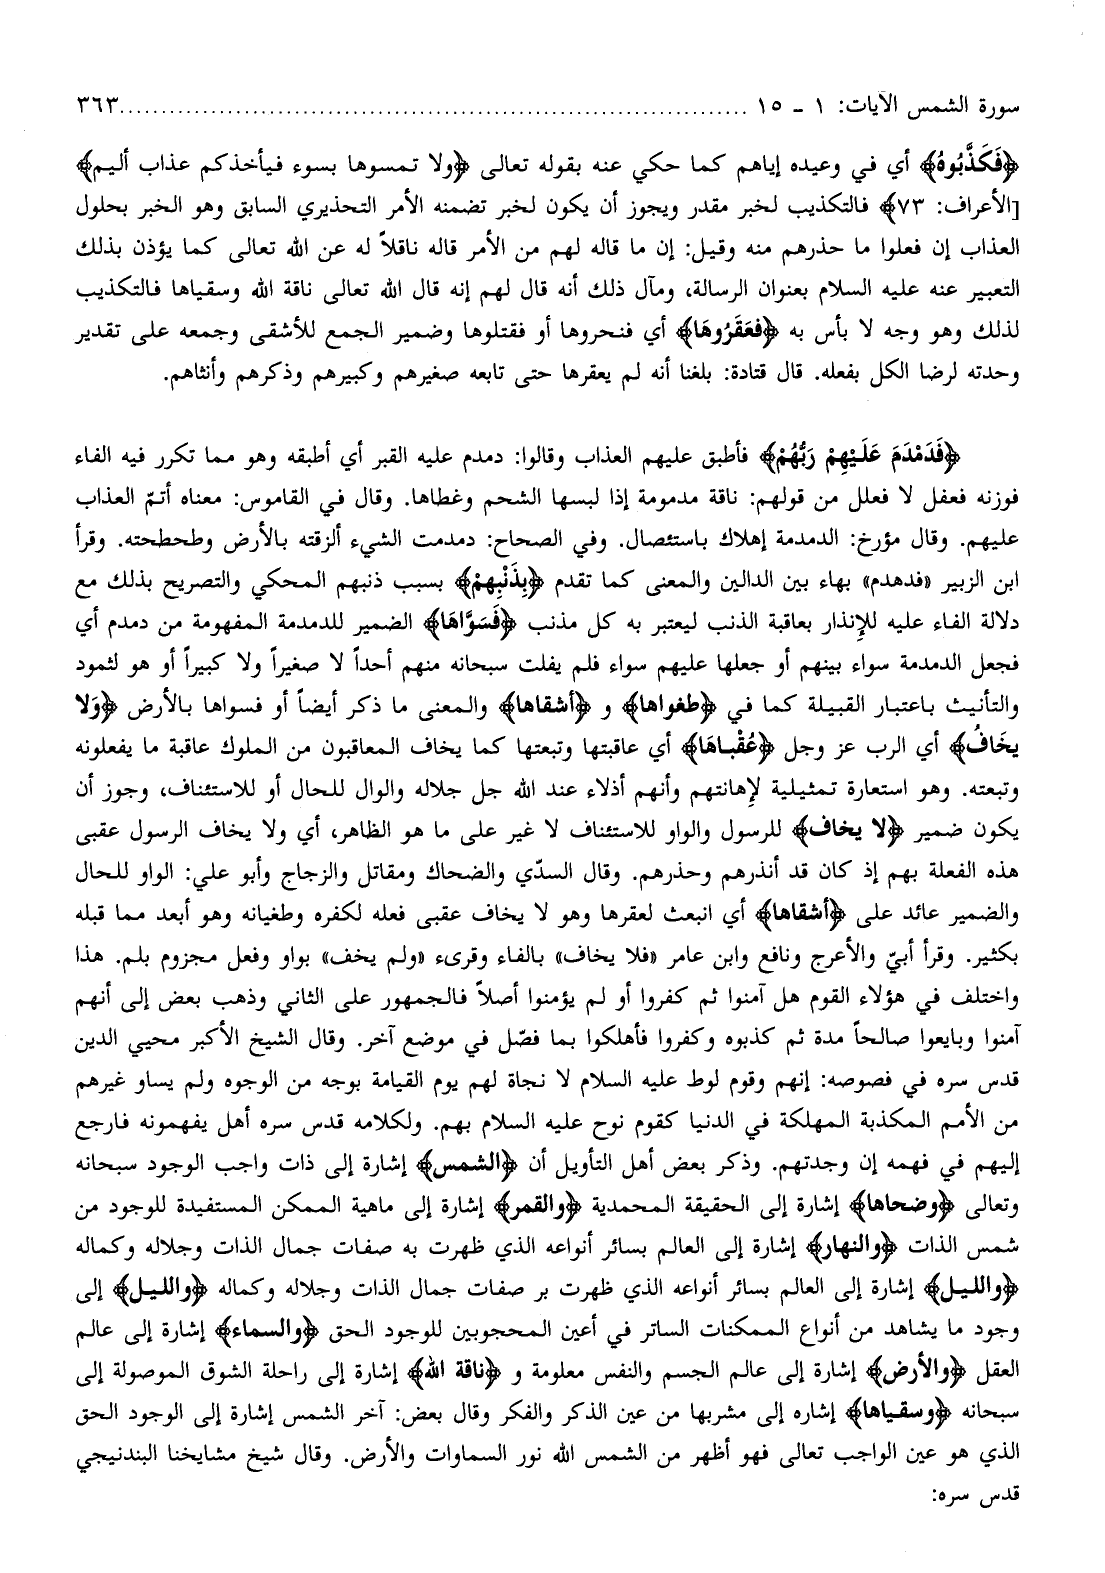 سورة الشمس الآيات: ١ ـ ١٥ ........................................................................... ٣٦٣
﴿فَكَذَّبُوهُ﴾ أي في وعيده إياهم كما حكي عنه بقوله تعالى ﴿ولا تمسوها بسوء فيأخذكم عذاب أليم﴾
[الأعراف: ٧٣﴾ فالتكذيب لخبر مقدر ويجوز أن يكون لخبر تضمنه الأمر التحذيري السابق وهو الخبر بحلول
العذاب إن فعلوا ما حذرهم منه وقيل: إن ما قاله لهم من الأمر قاله ناقلاً له عن الله تعالى كما يؤذن بذلك
التعبير عنه عليه السلام بعنوان الرسالة، ومآل ذلك أنه قال لهم إنه قال الله تعالى ناقة الله وسقياها فالتكذيب
لذلك وهو وجه لا بأس به ﴿فعَقَرُوهَا﴾ أي فنحروها أو فقتلوها وضمير الجمع للأشقى وجمعه على تقدير
وحدته لرضا الكل بفعله. قال قتادة: بلغنا أنه لم يعقرها حتى تابعه صغيرهم وكبيرهم وذكرهم وأنثاهم.
﴿فَدَمْدَمَ عَلَيْهِمْ رَبُّهُمْ﴾ فأطبق عليهم العذاب وقالوا: دمدم عليه القبر أي أطبقه وهو مما تكرر فيه الفاء
فوزنه فعفل لا فعلل من قولهم: ناقة مدمومة إذا لبسها الشحم وغطاها. وقال في القاموس: معناه أتمّ العذاب
عليهم. وقال مؤرخ: الدمدمة إهلاك باستئصال. وفي الصحاح: دمدمت الشيء ألزقته بالأرض وطحطحته. وقرأ
ابن الزبير «فدهدم» بهاء بين الدالين والمعنى كما تقدم ﴿بِذَنْبِهِمْ﴾ بسبب ذنبهم المحكي والتصريح بذلك مع
دلالة الفاء عليه للإنذار بعاقبة الذنب ليعتبر به كل مذنب ﴿فَسَوَّاهَا﴾ الضمير للدمدمة المفهومة من دمدم أي
فجعل الدمدمة سواء بينهم أو جعلها عليهم سواء فلم يفلت سبحانه منهم أحداً لا صغيراً ولا كبيراً أو هو لثمود
والتأنيث باعتبار القبيلة كما في ﴿طغواها﴾ و ﴿أشقاها﴾ والمعنى ما ذكر أيضاً أو فسواها بالأرض ﴿وَلا
يخَافُ﴾ أي الرب عز وجل ﴿عُقْبـاهَا﴾ أي عاقبتها وتبعتها كما يخاف المعاقبون من الملوك عاقبة ما يفعلونه
وتبعته. وهو استعارة تمثيلية لإهانتهم وأنهم أذلاء عند الله جل جلاله والوال للحال أو للاستئناف، وجوز أن
يكون ضمير ﴿لا يخاف﴾ للرسول والواو للاستئناف لا غير على ما هو الظاهر، أي ولا يخاف الرسول عقبى
هذه الفعلة بهم إذ كان قد أنذرهم وحذرهم. وقال السدّي والضحاك ومقاتل والزجاج وأبو علي: الواو للحال
والضمير عائد على ﴿أشقاها﴾ أي انبعث لعقرها وهو لا يخاف عقبى فعله لكفره وطغيانه وهو أبعد مما قبله
بكثير. وقرأ أبيّ والأعرج ونافع وابن عامر «فلا يخاف» بالفاء وقرىء «ولم يخف» بواو وفعل مجزوم بلم. هذا
واختلف في هؤلاء القوم هل آمنوا ثم كفروا أو لم يؤمنوا أصلاً فالجمهور على الثاني وذهب بعض إلى أنهم
آمنوا وبايعوا صالحاً مدة ثم كذبوه وكفروا فأهلكوا بما فصّل في موضع آخر. وقال الشيخ الأكبر محيي الدين
قدس سره في فصوصه: إنهم وقوم لوط عليه السلام لا نجاة لهم يوم القيامة بوجه من الوجوه ولم يساو غيرهم
من الأمم المكذبة المهلكة في الدنيا كقوم نوح عليه السلام بهم. ولكلامه قدس سره أهل يفهمونه فارجع
إليهم في فهمه إن وجدتهم. وذكر بعض أهل التأويل أن ﴿الشمس﴾ إشارة إلى ذات واجب الوجود سبحانه
وتعالى ﴿وضحاها﴾ إشارة إلى الحقيقة المحمدية ﴿والقمر﴾ إشارة إلى ماهية الممكن المستفيدة للوجود من
شمس الذات ﴿والنهار﴾ إشارة إلى العالم بسائر أنواعه الذي ظهرت به صفات جمال الذات وجلاله وكماله
﴿والليل﴾ إشارة إلى العالم بسائر أنواعه الذي ظهرت بر صفات جمال الذات وجلاله وكماله ﴿والليل﴾ إلى
وجود ما يشاهد من أنواع الممكنات الساتر في أعين المحجوبين للوجود الحق ﴿والسماء﴾ إشارة إلى عالم
العقل ﴿والأرض﴾ إشارة إلى عالم الجسم والنفس معلومة و ﴿ناقة الله﴾ إشارة إلى راحلة الشوق الموصولة إلى
سبحانه ﴿وسقياها﴾ إشاره إلى مشربها من عين الذكر والفكر وقال بعض: آخر الشمس إشارة إلى الوجود الحق
الذي هو عين الواجب تعالى فهو أظهر من الشمس الله نور السماوات والأرض. وقال شيخ مشايخنا البندنيجي
قدس سره: